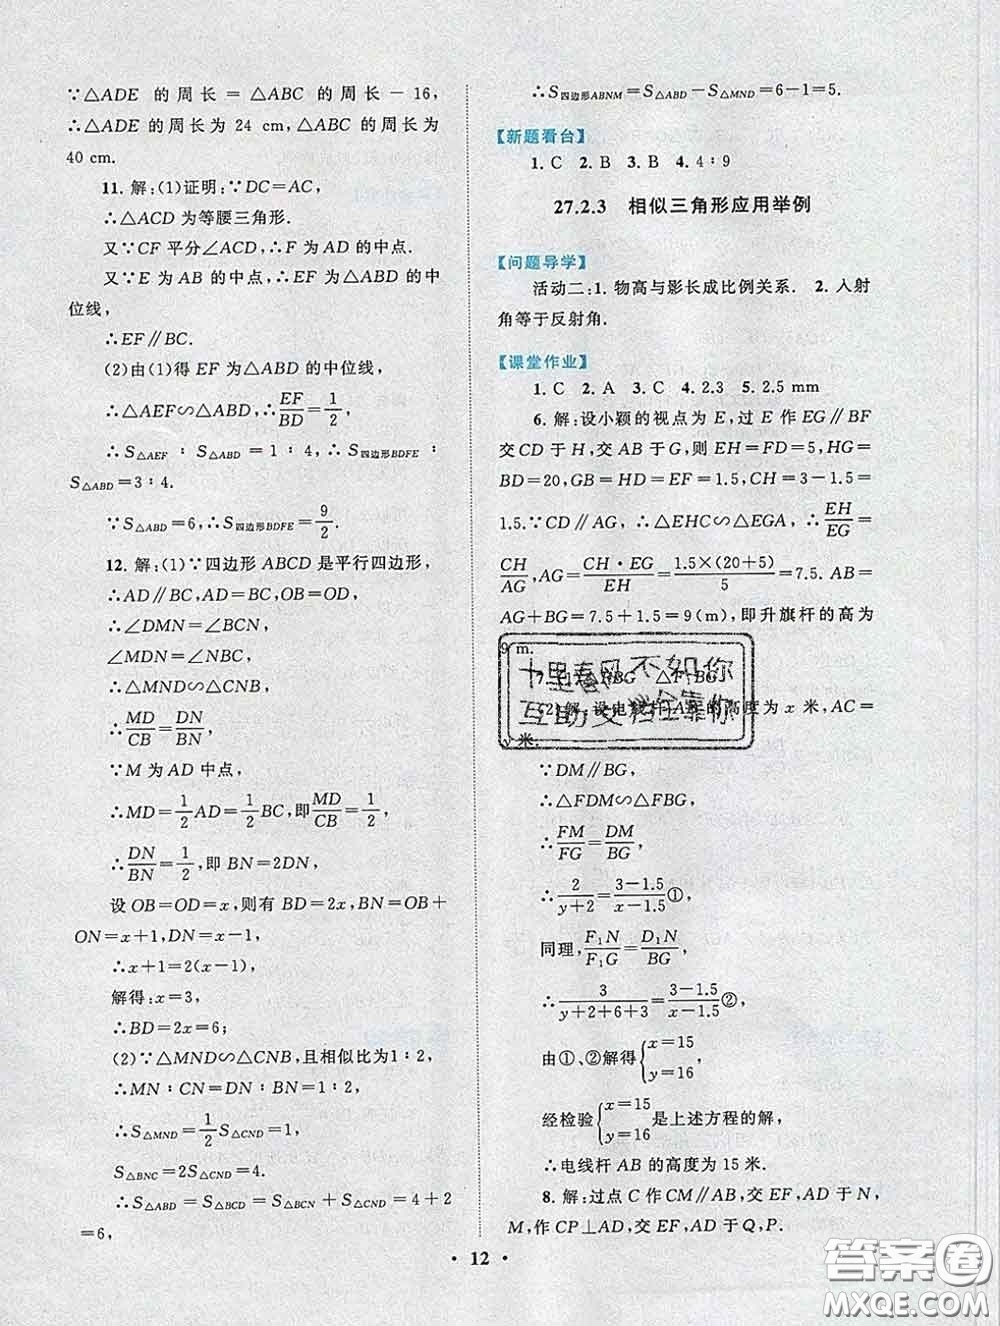 ∵△ADE 的周长=△ABC 的周长-16,
∴△ADE 的周长为 24 cm,△ABC 的周长为
40 cm.
11. 解:(1)证明:∵DC=AC,
∴△ACD 为等腰三角形.
又∵CF 平分∠ACD,∴F 为 AD 的中点.
又∵E 为 AB 的中点,∴EF 为△ABD 的中
位线,
∴EF∥BC.
(2)由(1)得 EF 为△ABD 的中位线,
∴△AEF∽△ABD,∴EF/BD=1/2,
∴S△AEF∶S△ABD=1∶4,∴S四边形BDFE∶
S△ABD=3∶4.
∵S△ABD=6,∴S四边形BDFE=9/2.
12. 解:(1)∵四边形 ABCD 是平行四边形,
∴AD∥BC,AD=BC,OB=OD,
∴∠DMN=∠BCN,
∠MDN=∠NBC,
∴△MND∽△CNB,
∴MD/CB=DN/BN,
∵M 为 AD 中点,
∴MD=1/2AD=1/2BC,即MD/CB=1/2,
∴DN/BN=1/2,即 BN=2DN,
设 OB=OD=x,则有 BD=2x,BN=OB+
ON=x+1,DN=x-1,
∴x+1=2(x-1),
解得:x=3,
∴BD=2x=6;
(2)∵△MND∽△CNB,且相似比为1∶2,
∴MN∶CN=DN∶BN=1∶2,
∴S△MND=1/2S△CND=1,
S△BNC=2S△CND=4,
∴S△ABD=S△BCD=S△BCN+S△CND=4+2
=6,
∴S四边形ABNM=S△ABD-S△MND=6-1=5.
【新题看台】
1. C 2. B 3. B 4. 4∶9
27.2.3 相似三角形应用举例
【问题导学】
活动二:1. 物高与影长成比例关系. 2. 入射
角等于反射角.
【课堂作业】
1. C 2. A 3. C 4. 2.3 5. 2.5 mm
6. 解:设小颖的视点为 E,过 E 作 EG∥BF
交 CD 于 H,交 AB 于 G,则 EH=FD=5,HG=
BD=20,GB=HD=EF=1.5,CH=3-1.5=
1.5.∵CD∥AG,∴△EHC∽△EGA,∴EH/EG=
CH/AG,AG=CH·EG/EH=1.5×(20+5)/5=7.5. AB=
AG+BG=7.5+1.5=9(m),即升旗杆的高为
9 m.
7. (1)△FBG △F₁BG
(2)解:设电线杆 AB 的高度为 x 米,AC=
y 米.
十里春风不如你
互助文档全靠你
∵DM∥BG,
∴△FDM∽△FBG,
∴FM/FG=DM/BG,
∴2/(y+2)=(3-1.5)/(x-1.5)①,
同理,F₁N/F₁G=D₁N/BG,
∴3/(y+2+6+3)=(3-1.5)/(x-1.5)②,
由①、②解得{x=15 y=16
经检验{x=15 y=16是上述方程的解,
∴电线杆 AB 的高度为 15 米.
8. 解:过点 C 作 CM∥AB,交 EF,AD 于 N,
M,作 CP⊥AD,交 EF,AD 于 Q,P.
• 12 •
答案圈
MXQE.COM